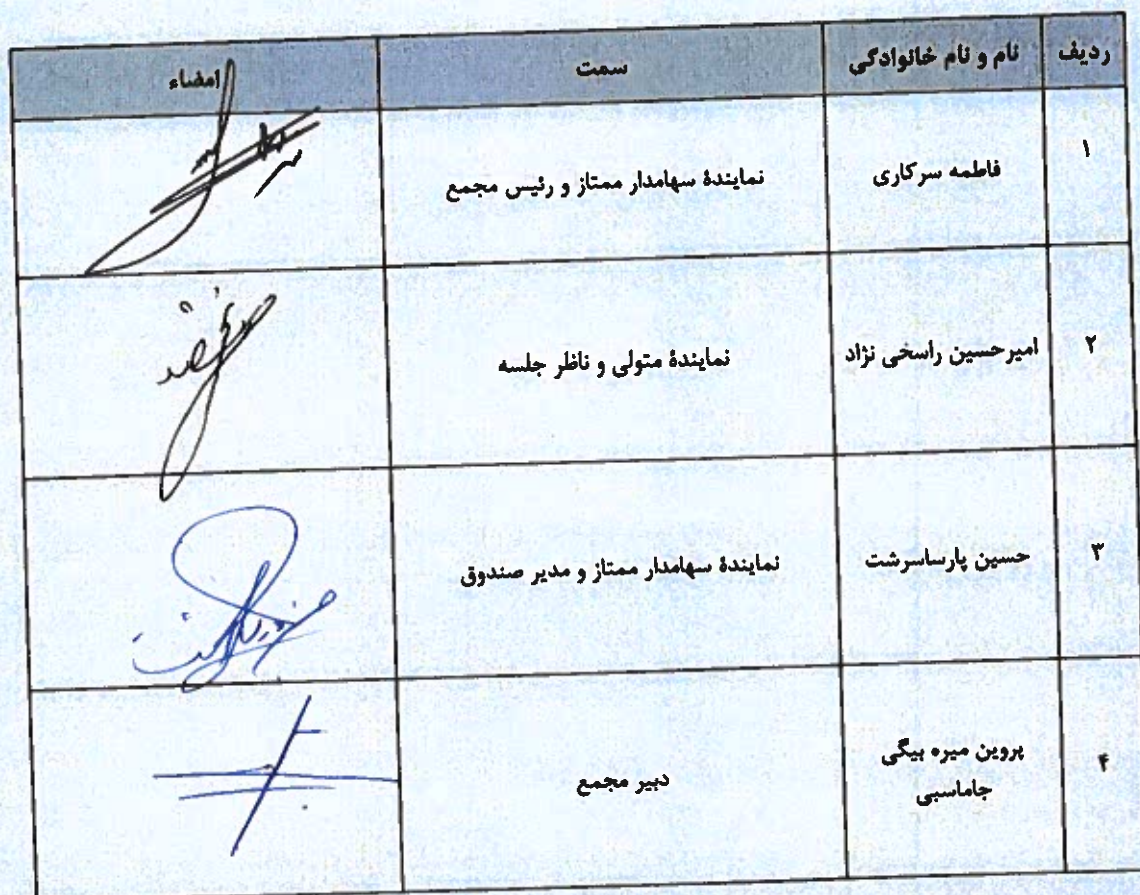 ردیف نام و نام خانوادگی سمت امضاء
۱ فاطمه سرکاری نمایندهٔ سهامدار ممتاز و رئیس مجمع
۲ امیرحسین راسخی نژاد نمایندهٔ متولی و ناظر جلسه
۳ حسین پارساسرشت نمایندهٔ سهامدار ممتاز و مدیر صندوق
۴ پروین میره بیگی دبیر مجمع
جاماسبی